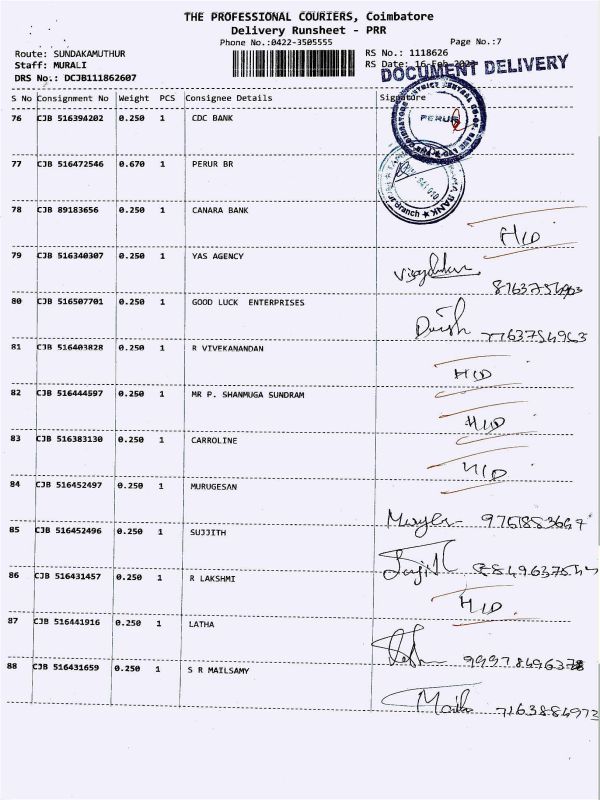 THE PROFESSIONAL COURIERS, Coimbatore
Delivery Runsheet - PRR
Phone No.:0422-3505555 Page No.:7
Route: SUNDAKAMUTHUR RS No.: 1118626
Staff: MURALI RS Date: 16-Feb
DRS No.: DCJB111862607
DOCUMENT DELIVERY
S No Consignment No Weight PCS Consignee Details Signature
76 CJB 516394202 0.250 1 CDC BANK
PERUR
77 CJB 516472546 0.670 1 PERUR BR
BANK
Branch
78 CJB 89183656 0.250 1 CANARA BANK
H/D
79 CJB 516340307 0.250 1 YAS AGENCY
80 CJB 516507701 0.250 1 GOOD LUCK ENTERPRISES
7763754963
81 CJB 516403828 0.250 1 R VIVEKANANDAN
H/D
82 CJB 516444597 0.250 1 MR P. SHANMUGA SUNDRAM
H/D
83 CJB 516383130 0.250 1 CARROLINE
H/D
84 CJB 516452497 0.250 1 MURUGESAN
85 CJB 516452496 0.250 1 SUJJITH
86 CJB 516431457 0.250 1 R LAKSHMI
H/D
87 CJB 516441916 0.250 1 LATHA
88 CJB 516431659 0.250 1 S R MAILSAMY
7163884972